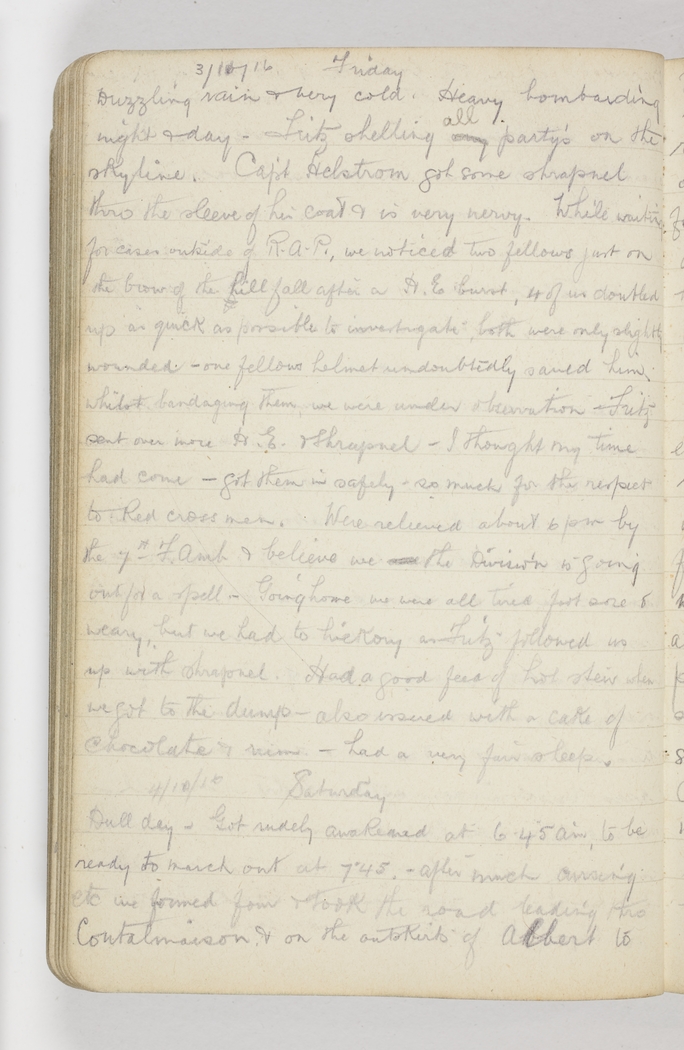 3/10/16 Friday
Duzzling rain & very cold. Heavy bombarding
night & day - Fritz shelling all party's on the
skyline. Capt Helstrom got some shrapnel
thro the sleeve of his coat & is very nervy. While waiting
for cases outside of R.A.P., we noticed two fellows just on
the brow of the hill fall after a H.E burst, 4 of us doubled
up as quick as possible to investigate, both were only slightly
wounded - one fellows helmet undoubtedly saved him,
whilst bandaging them, we were under observation - Fritz
sent over more H.E. & Shrapnel - I thought my time
had come - got them in safely - so much for the respect
to Red cross men. Were relieved about 6 pm by
the 7th F. Amb & believe we the Division is going
out for a spell - Going home we were all tired foot sore &
weary, but we had to hickory as Fritz followed us
up with shrapnel. Had a good feed of hot stew when
we got to the dump - also issued with a cake of
Chocolate & rum. - had a very fair sleep.
4/10/16 Saturday
Dull day - Got rudely awakened at 6.45 am, to be
ready to march out at 7.45. - after much cursing
etc we formed & took the road leading thro
Contalmaison & on the outskirts of Albert to